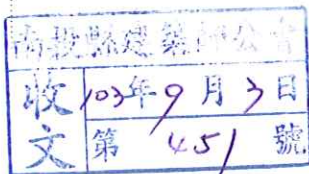 南投縣建築師公會
收文
103年9月3日
第 451 號